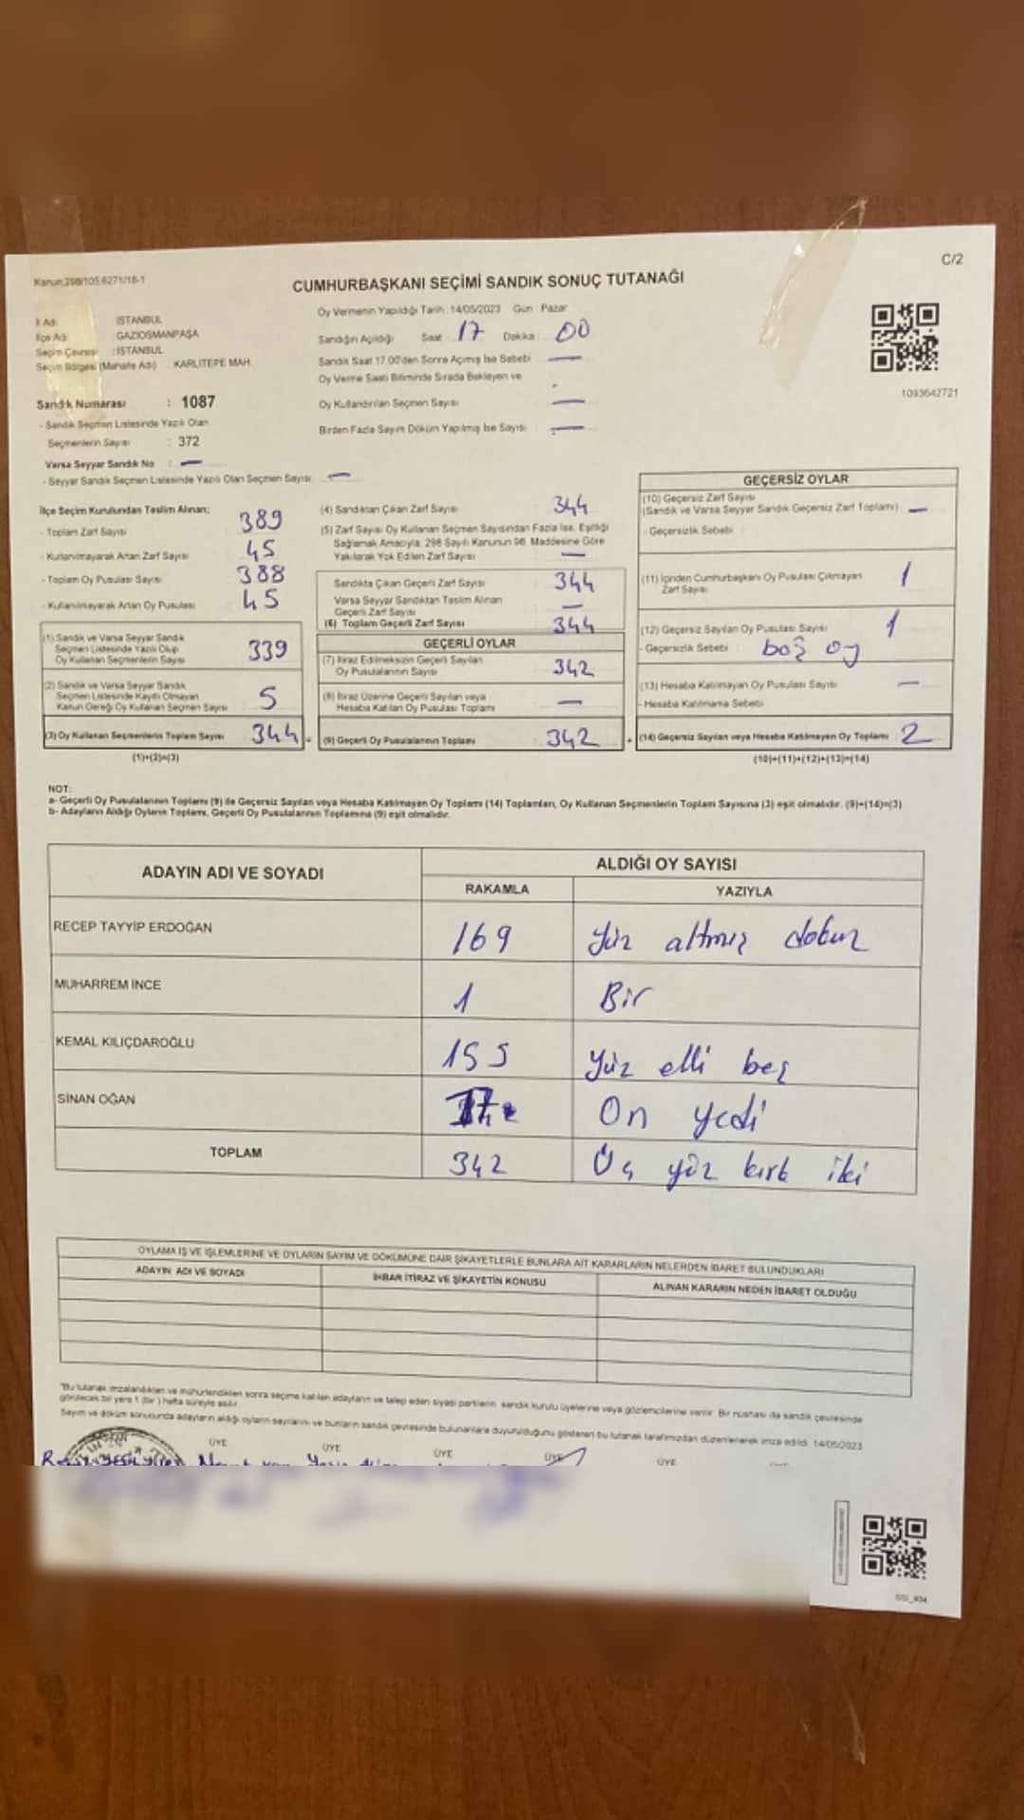 C/2
Kanun:298/105 6271/18-1
CUMHURBAŞKANI SEÇİMİ SANDIK SONUÇ TUTANAĞI
İl Adı : İSTANBUL
İlçe Adı : GAZİOSMANPAŞA
Seçim Çevresi : İSTANBUL
Seçim Bölgesi (Mahalle Adı) : KARLITEPE MAH.
Sandık Numarası : 1087
- Sandık Seçmen Listesinde Yazılı Olan
Seçmenlerin Sayısı : 372
Varsa Seyyar Sandık No : —
- Seyyar Sandık Seçmen Listesinde Yazılı Olan Seçmen Sayısı : —
Oy Vermenin Yapıldığı Tarih : 14/05/2023 Gün : Pazar
Sandığın Açıldığı Saat : 17 Dakika : 00
Sandık Saat 17.00'den Sonra Açılmış İse Sebebi : —
Oy Verme Saati Bitiminde Sırada Bekleyen ve
Oy Kullandırılan Seçmen Sayısı : —
Birden Fazla Sayım Döküm Yapılmış İse Sayısı : —
1093642721
İlçe Seçim Kurulundan Teslim Alınan;
- Toplam Zarf Sayısı : 389
- Kullanılmayarak Artan Zarf Sayısı : 45
- Toplam Oy Pusulası Sayısı : 388
- Kullanılmayarak Artan Oy Pusulası : 45
(1) Sandık ve Varsa Seyyar Sandık
Seçmen Listesinde Yazılı Olup
Oy Kullanan Seçmenlerin Sayısı : 339
(2) Sandık ve Varsa Seyyar Sandık
Seçmen Listesinde Kayıtlı Olmayan
Kanun Gereği Oy Kullanan Seçmen Sayısı : 5
(3) Oy Kullanan Seçmenlerin Toplam Sayısı : 344
(1)+(2)=(3)
(4) Sandıktan Çıkan Zarf Sayısı : 344
(5) Zarf Sayısı Oy Kullanan Seçmen Sayısından Fazla İse, Eşitliği
Sağlamak Amacıyla; 298 Sayılı Kanunun 98. Maddesine Göre
Yakılarak Yok Edilen Zarf Sayısı : —
Sandıkta Çıkan Geçerli Zarf Sayısı : 344
Varsa Seyyar Sandıktan Teslim Alınan
Geçerli Zarf Sayısı : —
(6) Toplam Geçerli Zarf Sayısı : 344
GEÇERLİ OYLAR
(7) İtiraz Edilmeksizin Geçerli Sayılan
Oy Pusulalarının Sayısı : 342
(8) İtiraz Üzerine Geçerli Sayılan veya
Hesaba Katılan Oy Pusulası Toplamı : —
(9) Geçerli Oy Pusulalarının Toplamı : 342
GEÇERSİZ OYLAR
(10) Geçersiz Zarf Sayısı
(Sandık ve Varsa Seyyar Sandık Geçersiz Zarf Toplamı) : —
- Geçersizlik Sebebi :
(11) İçinden Cumhurbaşkanı Oy Pusulası Çıkmayan
Zarf Sayısı : 1
(12) Geçersiz Sayılan Oy Pusulası Sayısı : 1
- Geçersizlik Sebebi : boş oy
(13) Hesaba Katılmayan Oy Pusulası Sayısı : —
- Hesaba Katılmama Sebebi :
(14) Geçersiz Sayılan veya Hesaba Katılmayan Oy Toplamı : 2
(10)+(11)+(12)+(13)=(14)
NOT:
a- Geçerli Oy Pusulalarının Toplamı (9) ile Geçersiz Sayılan veya Hesaba Katılmayan Oy Toplamı (14) Toplamları, Oy Kullanan Seçmenlerin Toplam Sayısına (3) eşit olmalıdır. (9)+(14)=(3)
b- Adayların Aldığı Oyların Toplamı, Geçerli Oy Pusulalarının Toplamına (9) eşit olmalıdır.
ADAYIN ADI VE SOYADI
ALDIĞI OY SAYISI
RAKAMLA YAZIYLA
RECEP TAYYİP ERDOĞAN 169 Yüz altmış dokuz
MUHARREM İNCE 1 Bir
KEMAL KILIÇDAROĞLU 155 Yüz elli beş
SİNAN OĞAN 17 On yedi
TOPLAM 342 Üç yüz kırk iki
OYLAMA İŞ VE İŞLEMLERİNE VE OYLARIN SAYIM VE DÖKÜMÜNE DAİR ŞİKAYETLERLE BUNLARA AİT KARARLARIN NELERDEN İBARET BULUNDUKLARI
ADAYIN ADI VE SOYADI İHBAR İTİRAZ VE ŞİKAYETİN KONUSU ALINAN KARARIN NEDEN İBARET OLDUĞU
"Bu tutanak imzalandıktan ve mühürlendikten sonra seçime katılan adayların ve talep eden siyasi partilerin sandık kurulu üyelerine veya gözlemcilerine verilir. Bir nüshası da sandık çevresinde
görülecek bir yere 1 (bir) hafta süreyle asılır.
Sayım ve döküm sonucunda adayların aldığı oyların sayılarını ve bunların sandık çevresinde bulunanlara duyurulduğunu gösteren bu tutanak tarafımızdan düzenlenerek imza edildi. 14/05/2023
ÜYE ÜYE ÜYE ÜYE ÜYE